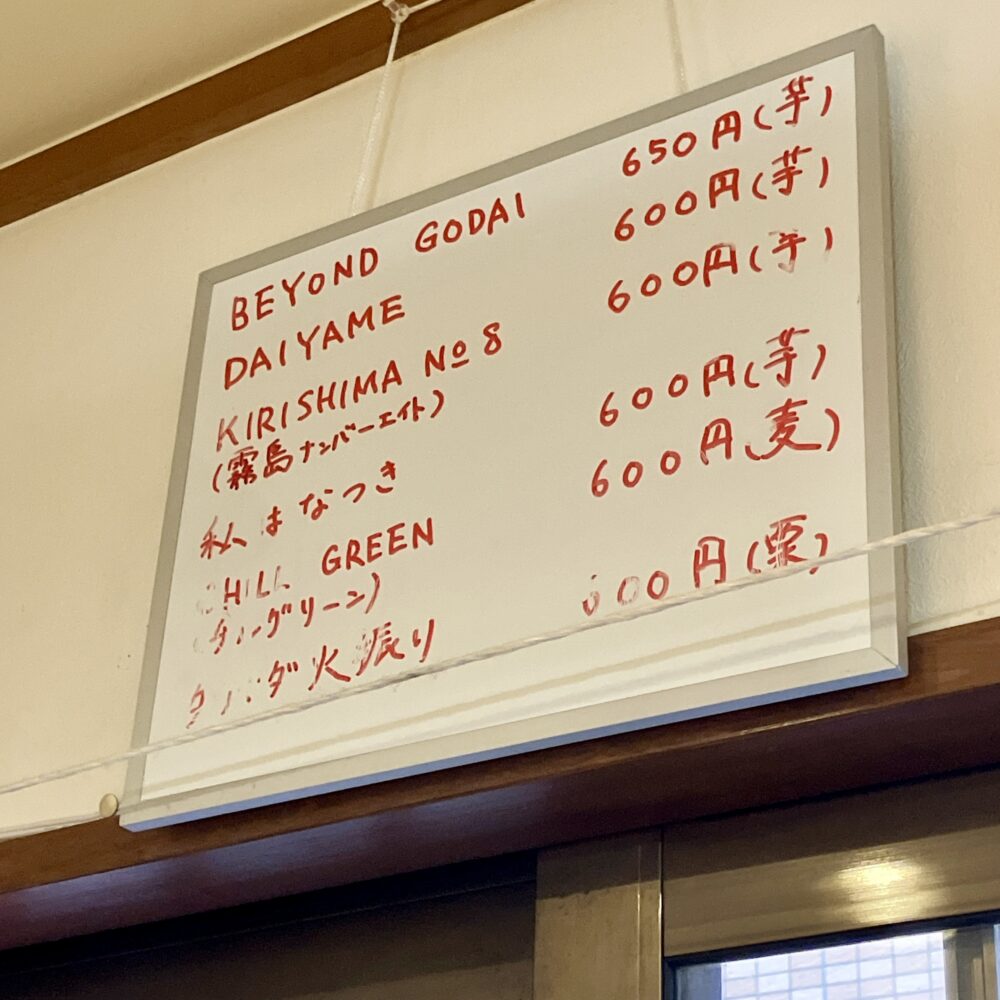 BEYOND GODAI 650円(芋)
DAIYAME 600円(芋)
KIRISHIMA No 8 600円(芋)
(霧島ナンバーエイト)
私はなつき 600円(芋)
CHILL GREEN 600円(麦)
(チルグリーン)
ダバダ火振り 00円(栗)